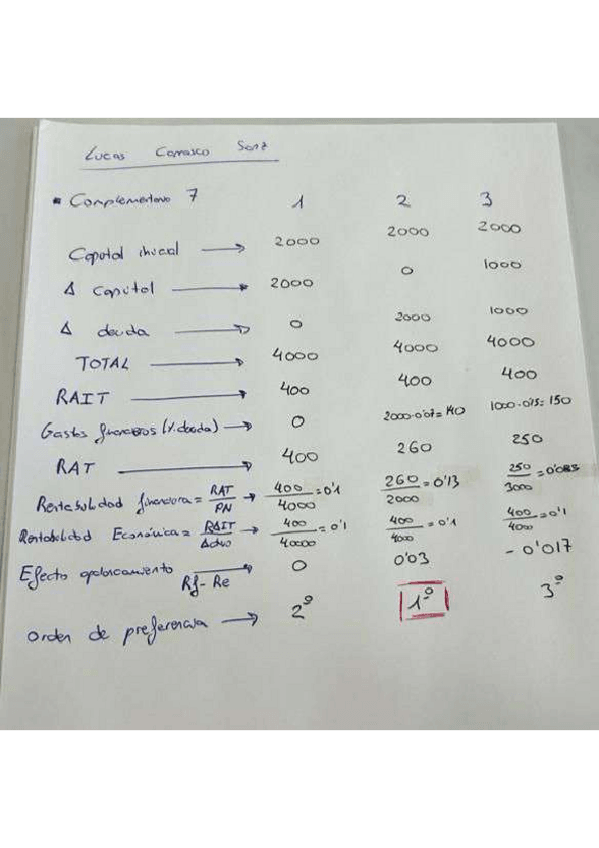 Lucas Carrasco Sanz
• Complementario 7 1 2 3
Capital inicial → 2000 2000 2000
Δ Capital → 2000 0 1000
Δ deuda → 0 2000 1000
TOTAL → 4000 4000 4000
RAIT → 400 400 400
Gastos financieros (%.deuda) → 0 2000·0'07=140 1000·0'15=150
RAT → 400 260 250
Rentabilidad financiera = RAT/PN → 400/4000 = 0'1 260/2000 = 0'13 250/3000 = 0'083
Rentabilidad Económica = RAIT/Activo → 400/4000 = 0'1 400/4000 = 0'1 400/4000 = 0'1
Efecto apalancamiento Rf - Re → 0 0'03 - 0'017
Orden de preferencia → 2º 1º 3º